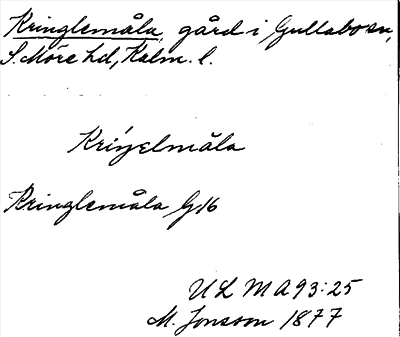 Kringlemåla, gård i Gullabo sn,
S. Möre hd, Kalm. l.
Kriŋelmåla
Kringlemåla G16
ULMA 93:25
M. Jonsson 1877